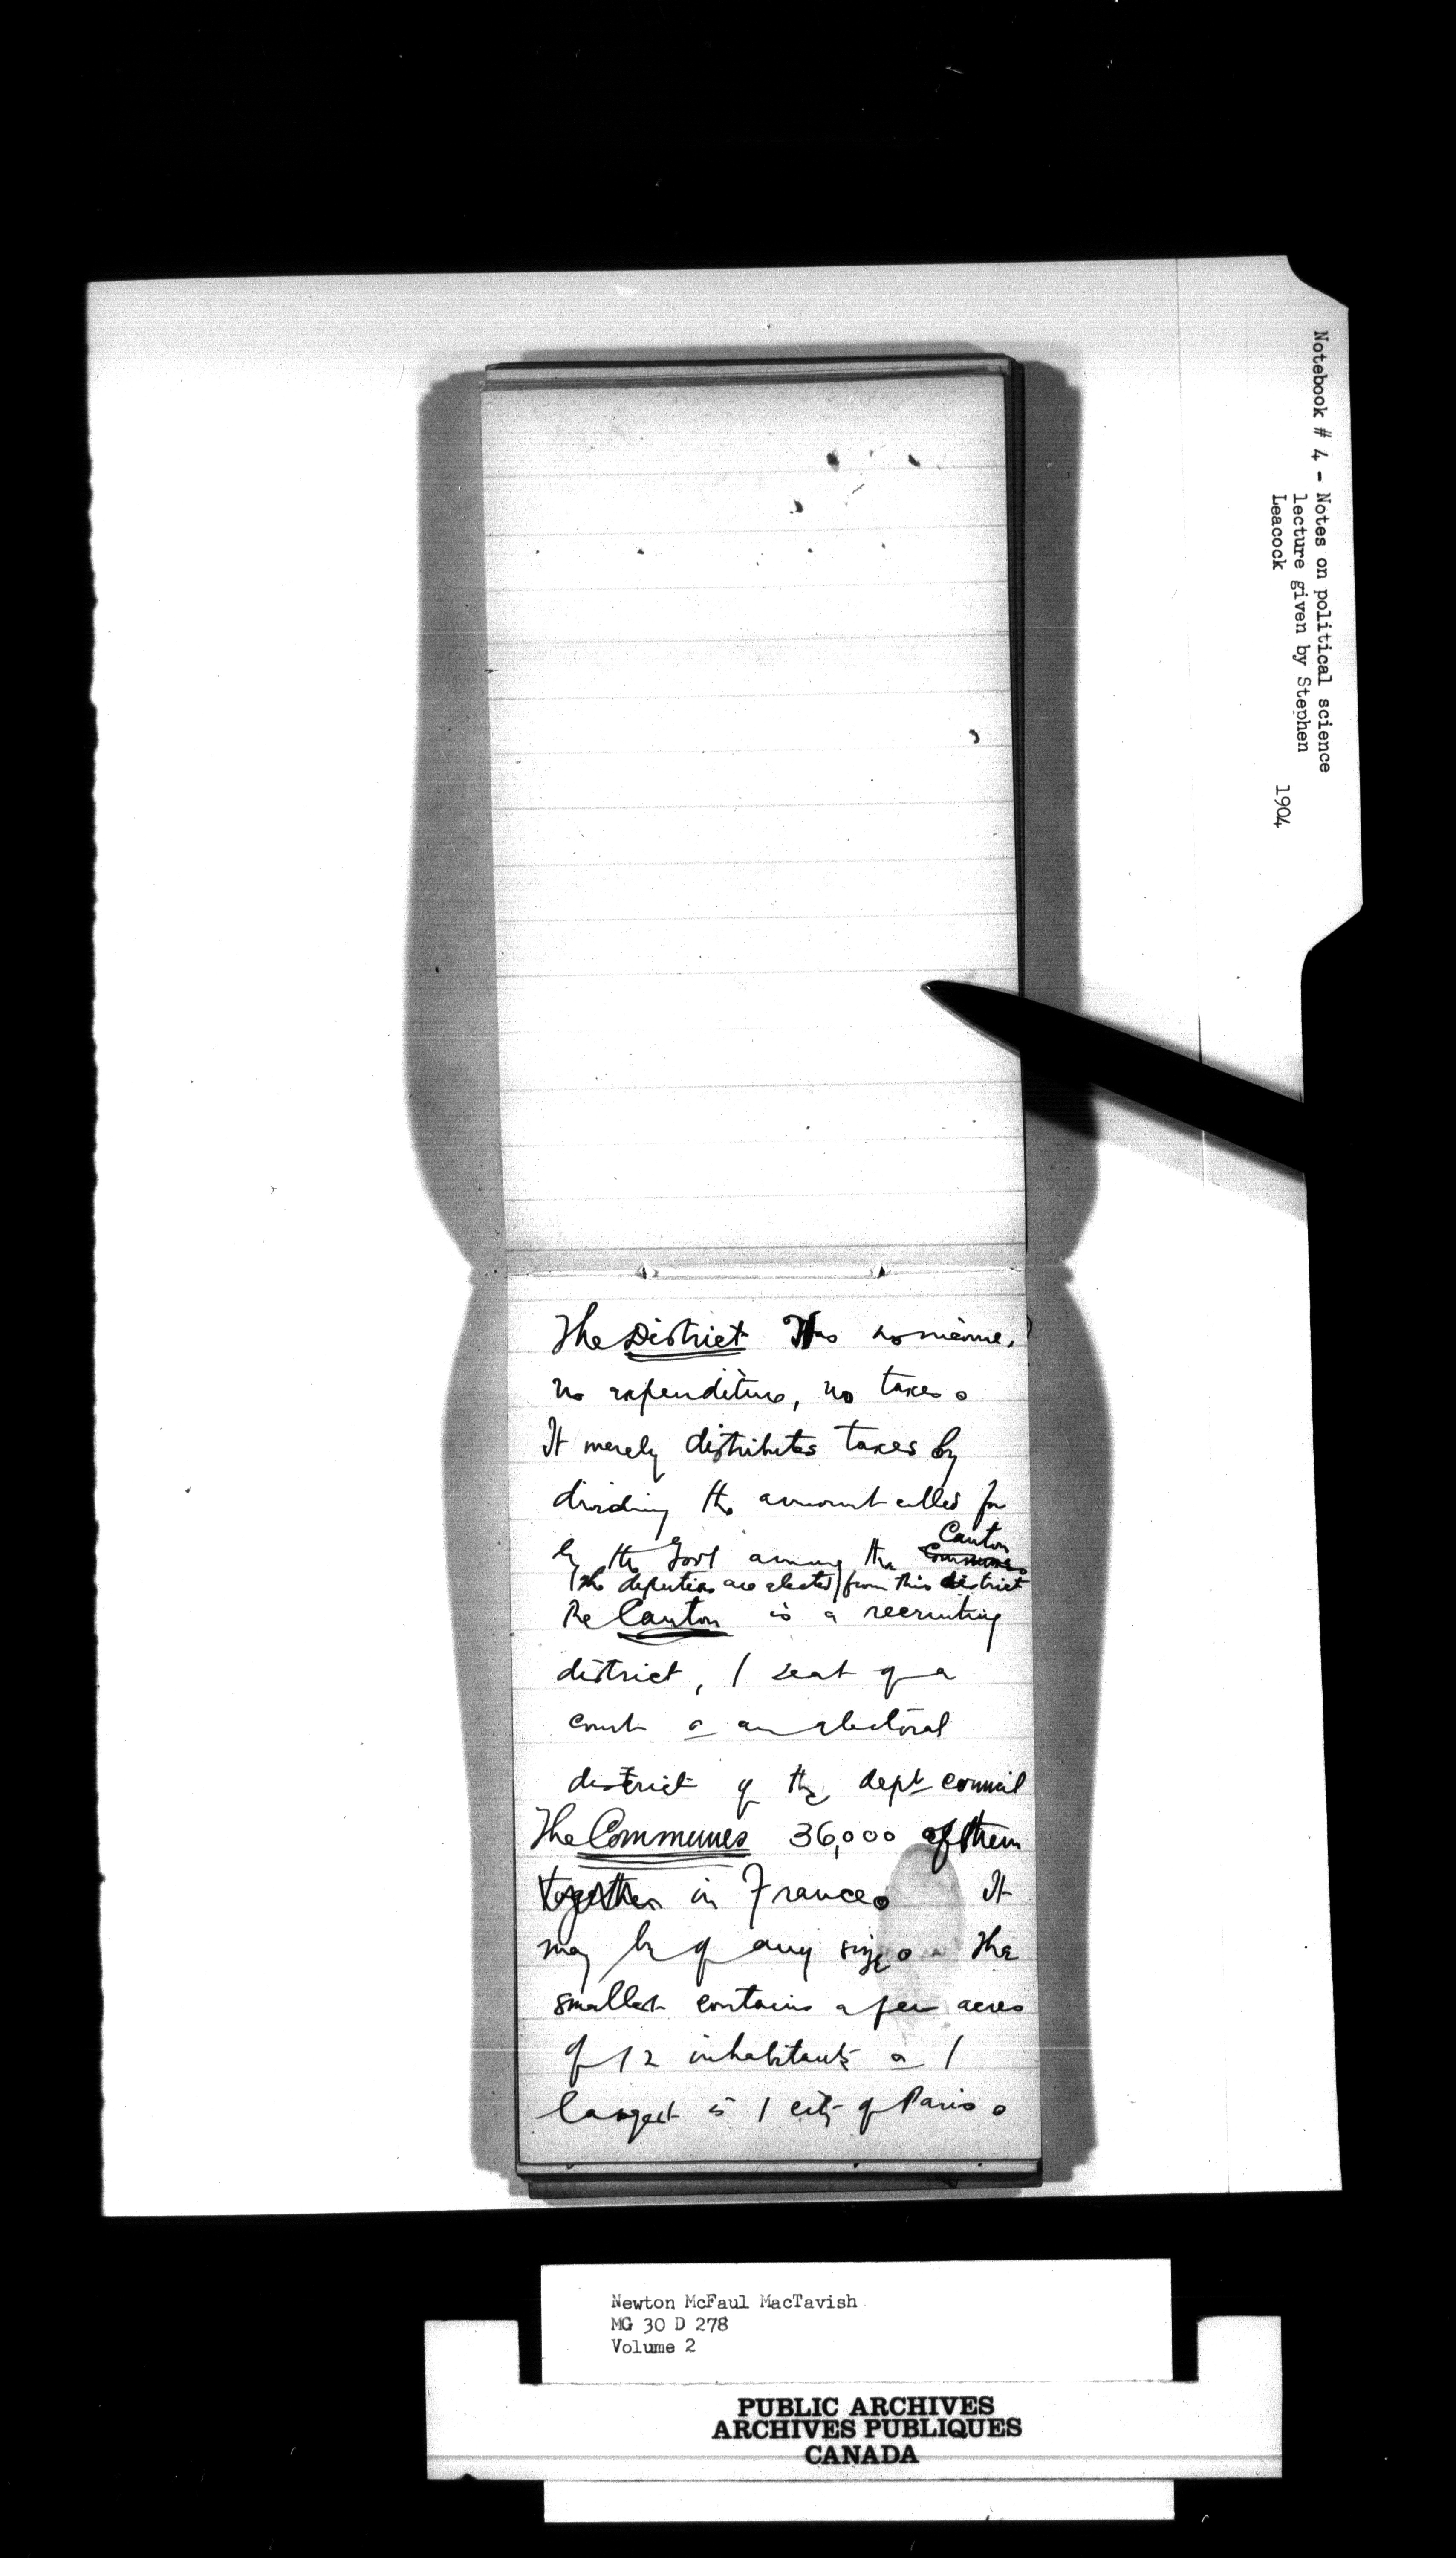 Notebook # 4 - Notes on political science
lecture given by Stephen
Leacock 1904
The District Has no income,
no expenditure, no taxes.
It merely distributes taxes by
dividing the amount called for
by the Govt among the Canton
Communes.
(The deputies are elected) from this district
The Canton is a recruiting
district, / seat of a
court & an electoral
district of the dept council
The Communes 36,000 of them
together in France. It
may be of any size. The
smallest contains a few acres
of 12 inhabitants & /
largest is / city of Paris.
Newton McFaul MacTavish
MG 30 D 278
Volume 2
PUBLIC ARCHIVES
ARCHIVES PUBLIQUES
CANADA